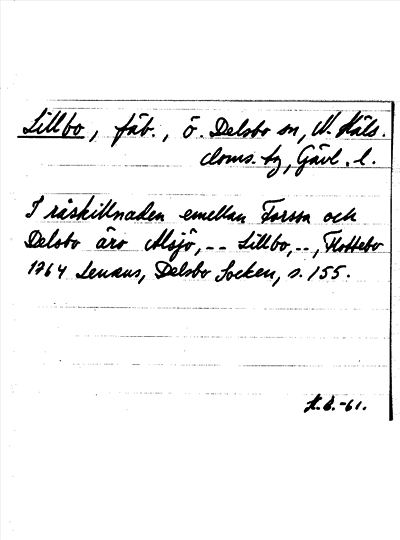 Lillbo, fäb., ö. Delsbo sn, N. Häls.
doms. hg, Gävl. l.
I råskillnaden emellan Forssa och
Delsbo äro Alsjö, -- Lillbo, --, Flottebo
1764 Lenæus, Delsbo Socken, s. 155.
-61.